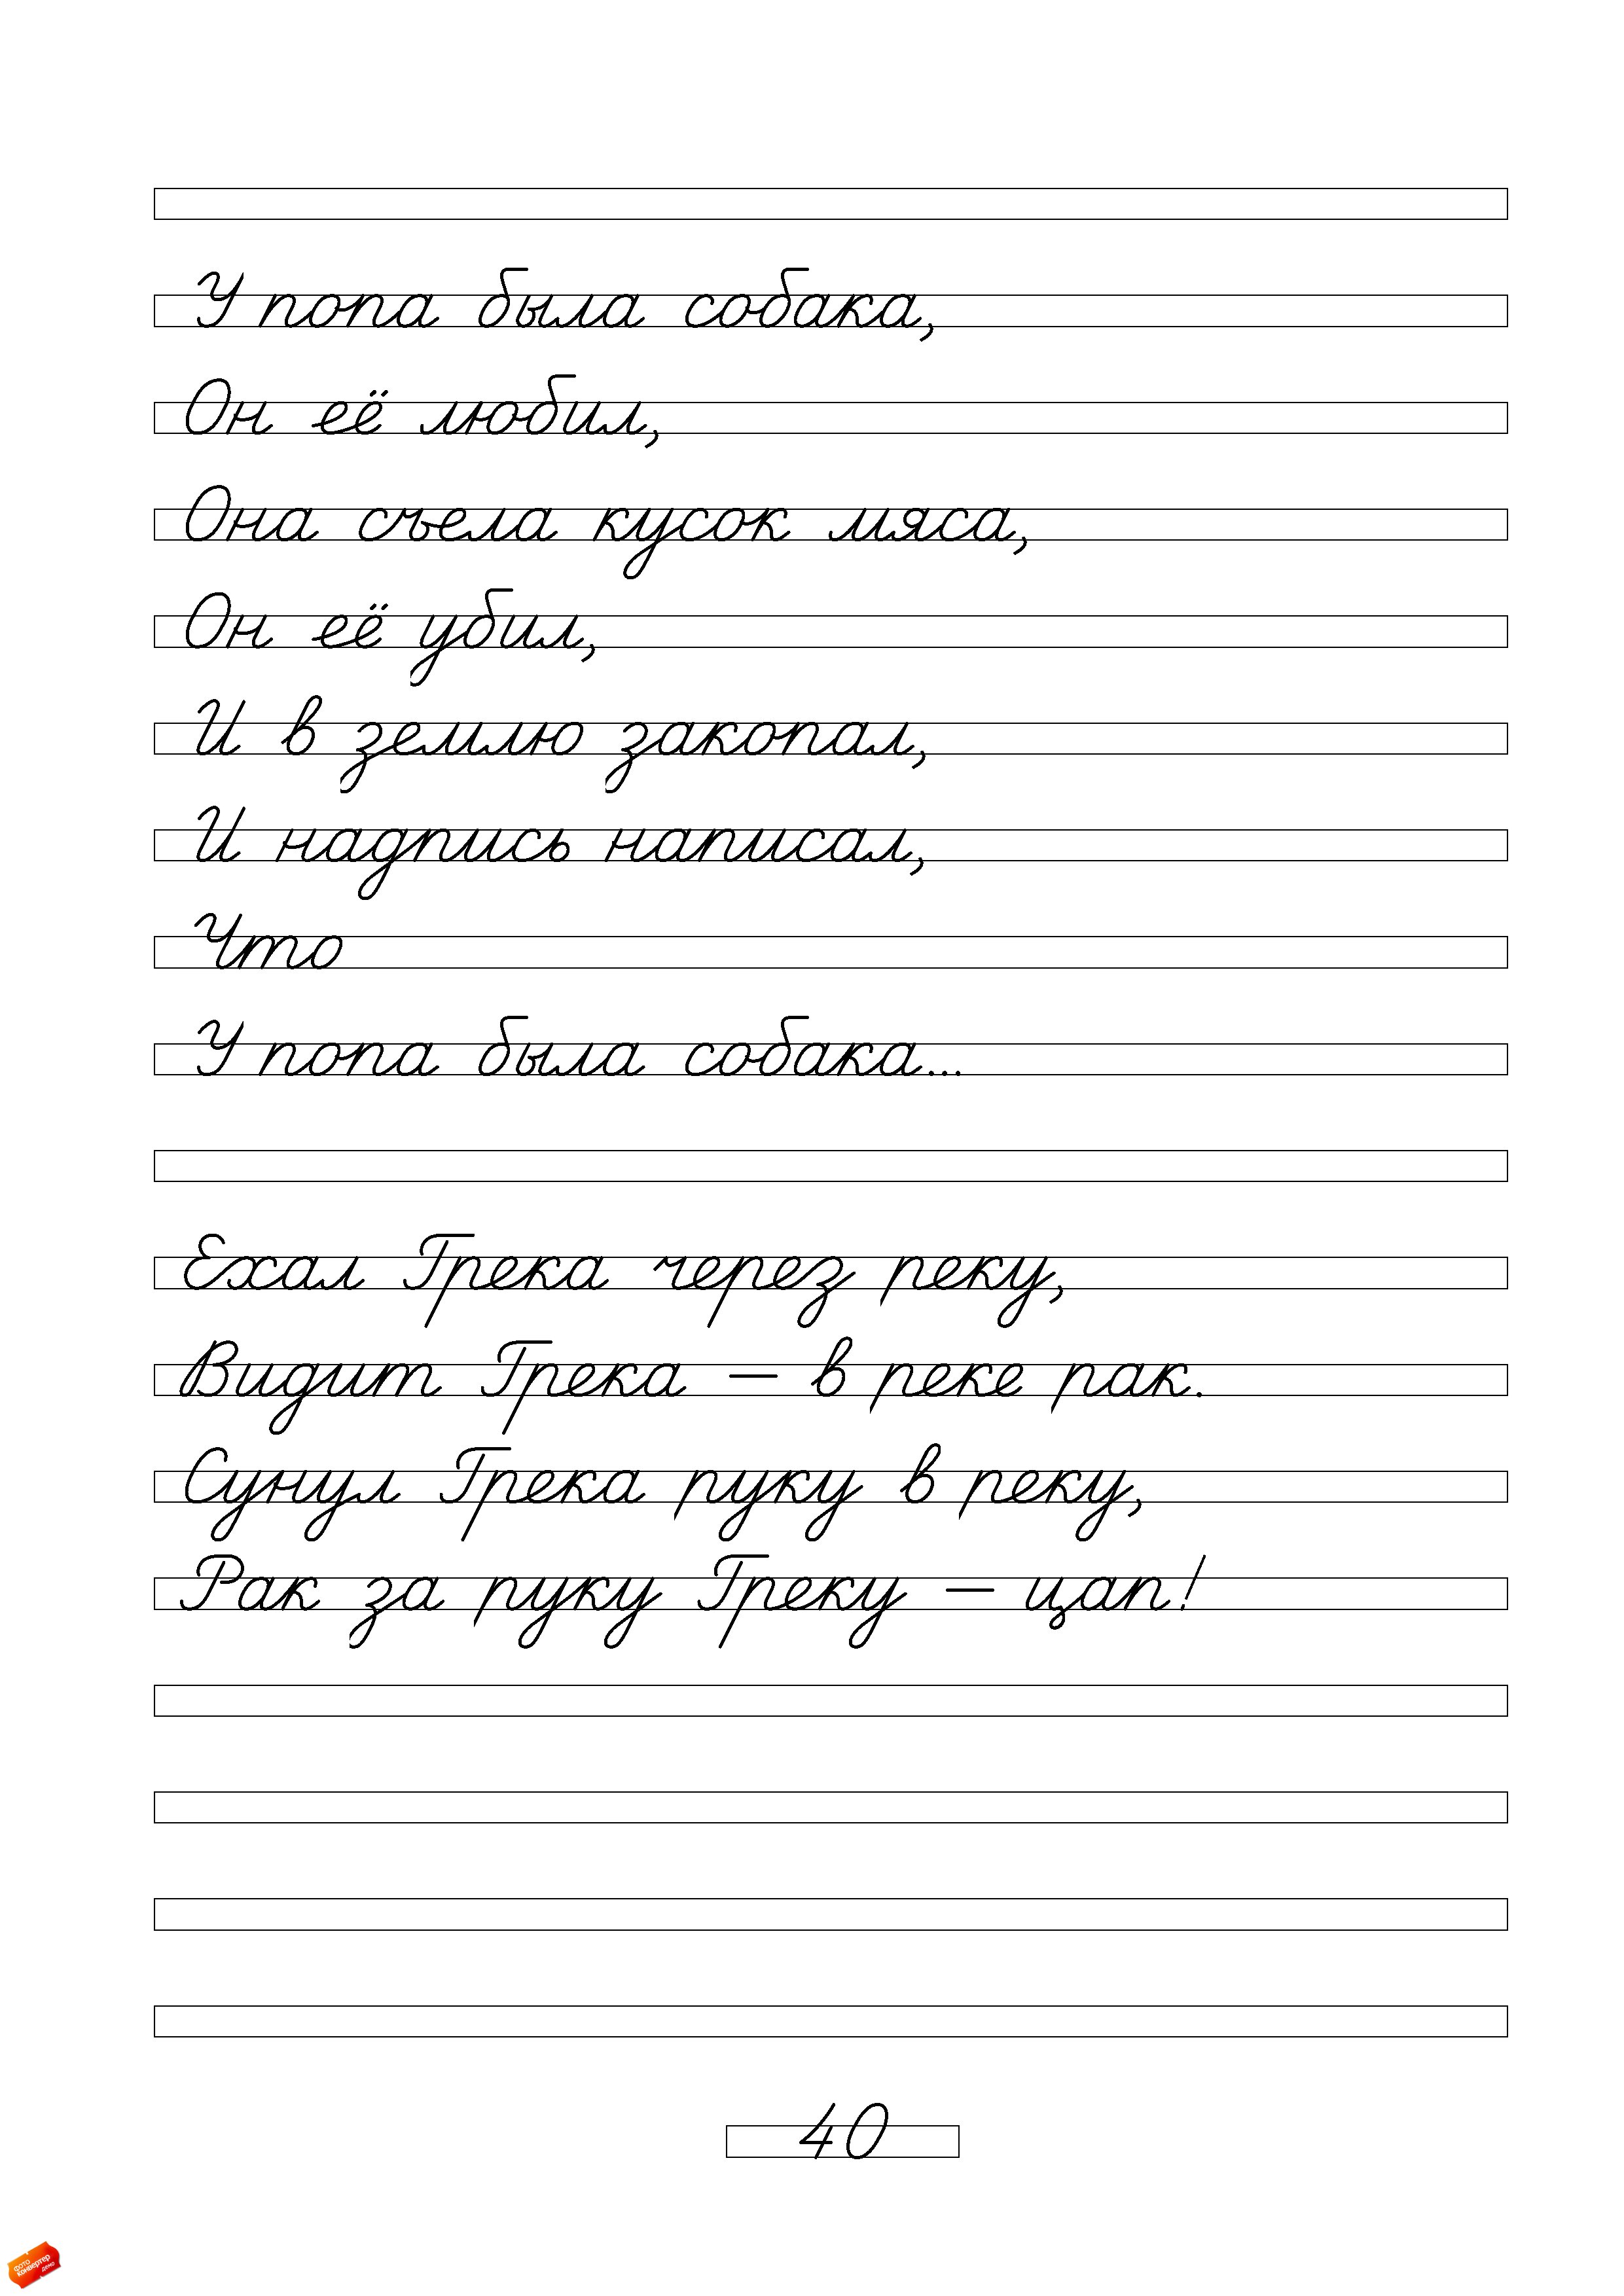 У попа была собака,
Он её любил,
Она съела кусок мяса,
Он её убил,
И в землю закопал,
И надпись написал,
Что
У попа была собака...
Ехал Грека через реку,
Видит Грека — в реке рак.
Сунул Грека руку в реку,
Рак за руку Греку — цап!
40
фото
конвертер
демо